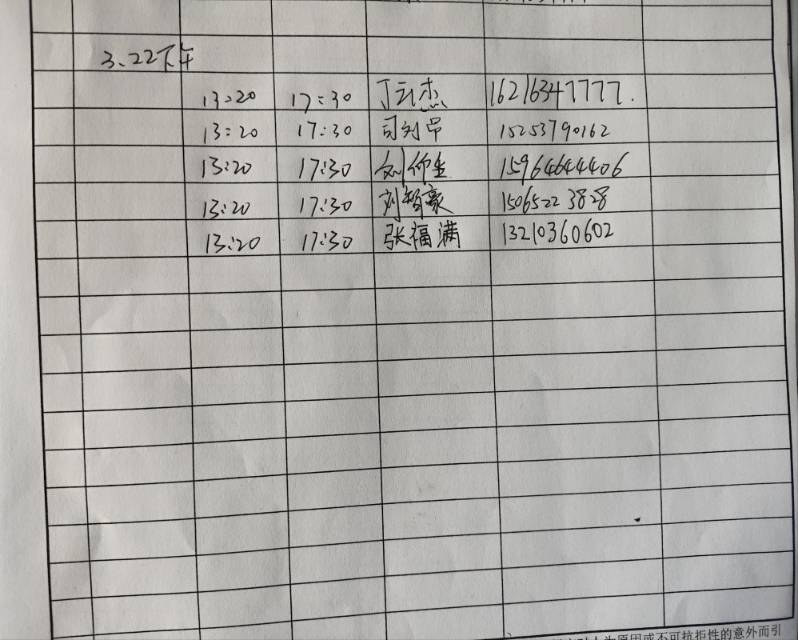 3.22下午
13:20 17:30 丁云杰 16216347777.
13:20 17:30 15253790162
13:20 17:30 刘仰生 15964644406
13:20 17:30 刘哲豪 15065223828
13:20 17:30 张福满 13210360602
人为原因或不可抗拒性的意外而引